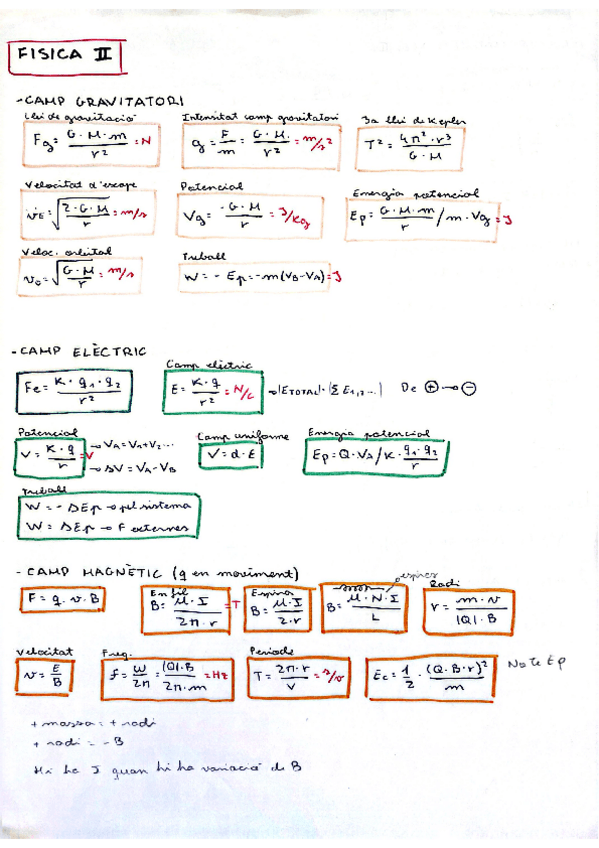 FISICA II
- CAMP GRAVITATORI
Llei de gravitació
Fg = G · M · m / r² = N
Intensitat camp gravitatori
g = F / m = G · M · / r² = m/s²
3a llei de Kepler
T² = 4π² · r³ / G · M
Velocitat d'escape
vE = √(2 · G · M / r) = m/s
Potencial
Vg = - G · M / r = J/Kg
Energia potencial
Ep = G · M · m / r / m · Vg = J
Veloc. orbital
vo = √(G · M / r) = m/s
Treball
W = - Ep = - m (VB - VA) = J
- CAMP ELÈCTRIC
Fe = K · q1 · q2 / r²
Camp elèctric
E = K · q / r² = N/C
→ |ETOTAL| = |Σ E1,2...| De ⊕ → ⊖
Potencial
V = K · q / r = V
→ VA = V1 + V2 ...
→ ΔV = VA - VB
Camp uniforme
V = d · E
Energia potencial
Ep = Q · VA / K · q1 · q2 / r
Treball
W = - ΔEp → pel sistema
W = ΔEp → F externes
- CAMP MAGNÈTIC (q en moviment)
F = q · v · B
En fil
B = μ · I / 2π · r = T
Espira
B = μ · I / 2 · r
espires
B = μ · N · I / L
Radi
r = m · v / |Q| · B
Velocitat
v = E / B
Freq.
f = ω / 2π = |Q| · B / 2π · m = Hz
Període
T = 2π · r / v = s/v
Ec = 1/2 · (Q · B · r)² / m
No te Ep
+ massa = + radi
+ radi = - B
Hi ha I quan hi ha variació de B